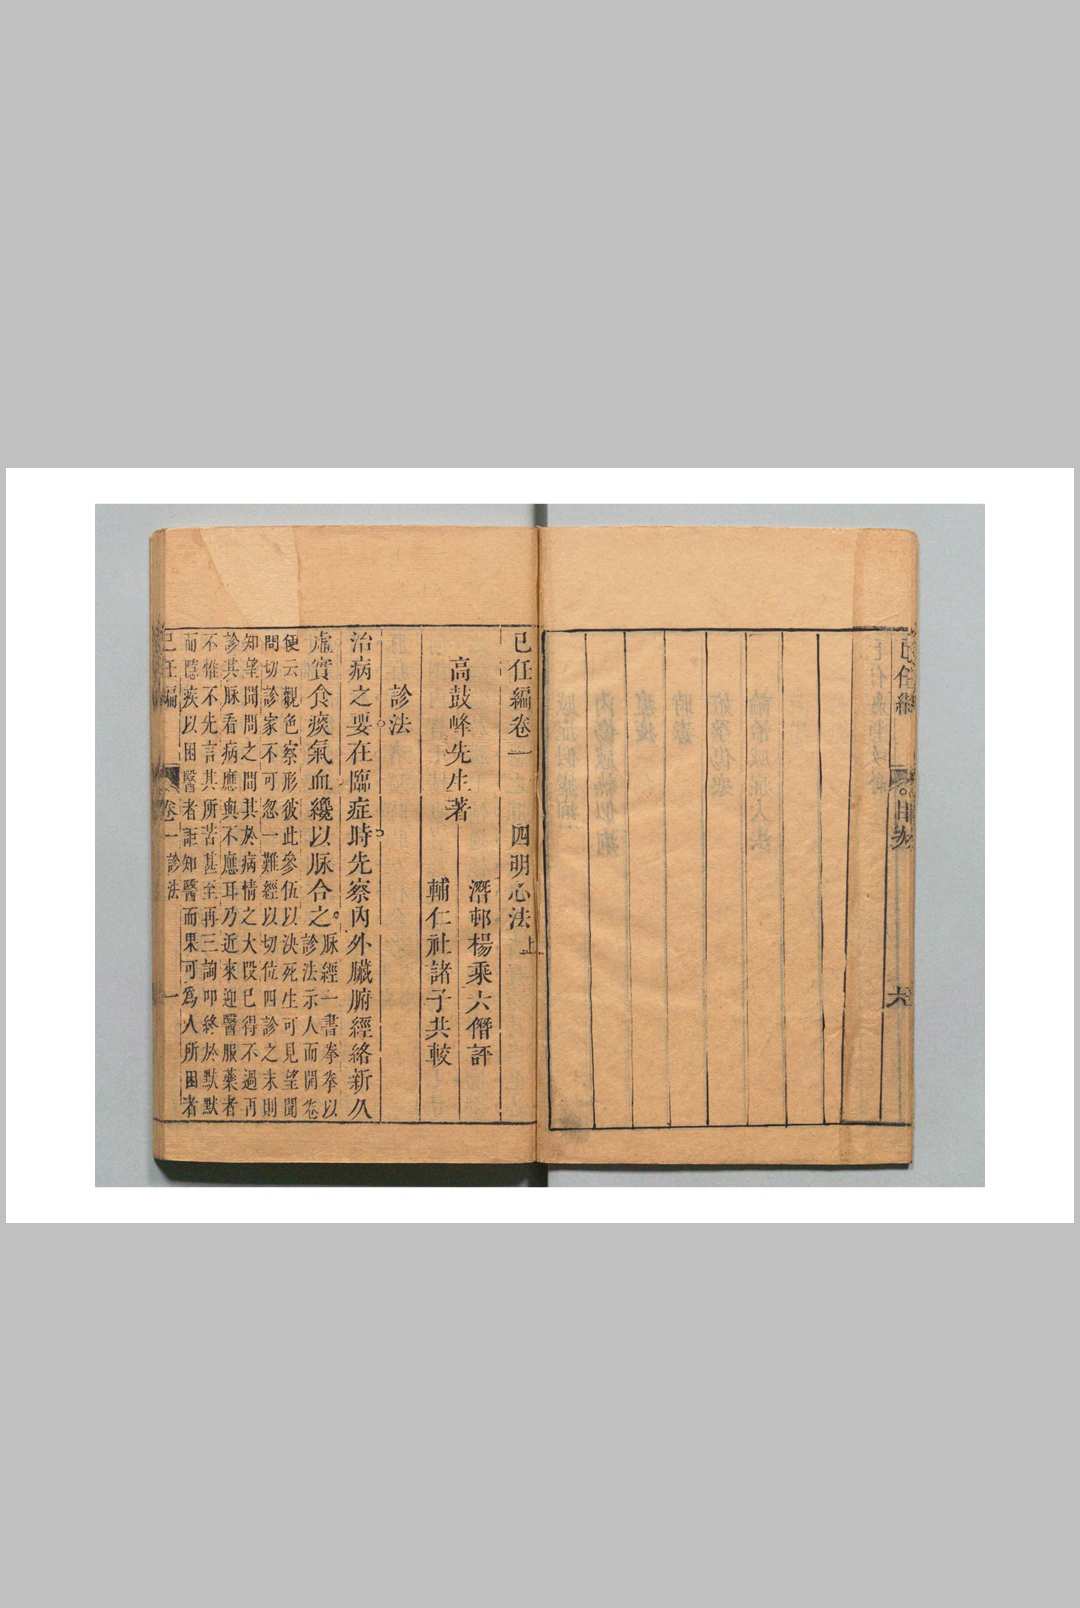 已任編
目次
六
已任編卷一
四明心法上
高鼓峰先生著
潛邨楊乘六僭評
輔仁社諸子共較
診法
治病之要在臨症時先察內外臟腑經絡新久
虛實食痰氣血纔以脉合之
脉經一書拳拳以
診法示人而開卷
便云觀色察形彼此參伍以決死生可見望聞
問切診家不可忽一難經以切位四診之末則
知望聞問之間其於病情之大段已得不過再
診其脉看病應與不應耳乃近來迎醫服藥者
不惟不先言其所苦甚至再三詢叩終於默默
而隱疾以困醫者詎知醫而果可為人所困者
已任編
卷一
診法
一